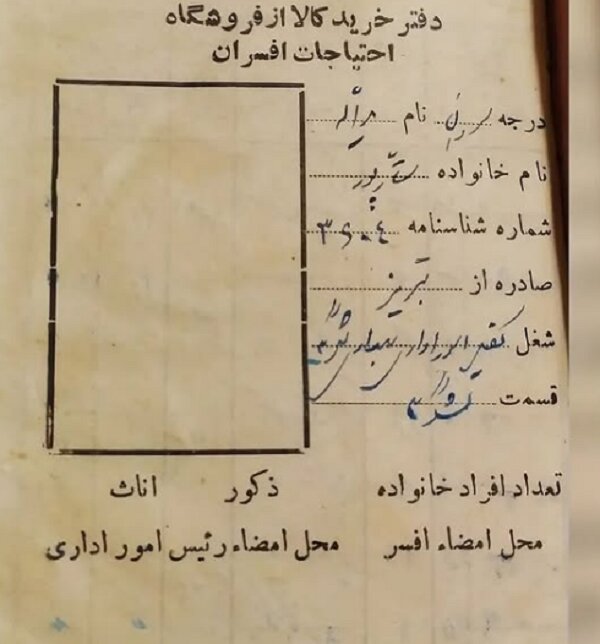 دفتر خرید کالا از فروشگاه
احتیاجات افسران
درجه نام
نام خانواده
شماره شناسنامه ۳۶۰۴
صادره از تبریز
شغل
قسمت
تعداد افراد خانواده ذکور اناث
محل امضاء افسر محل امضاء رئیس امور اداری